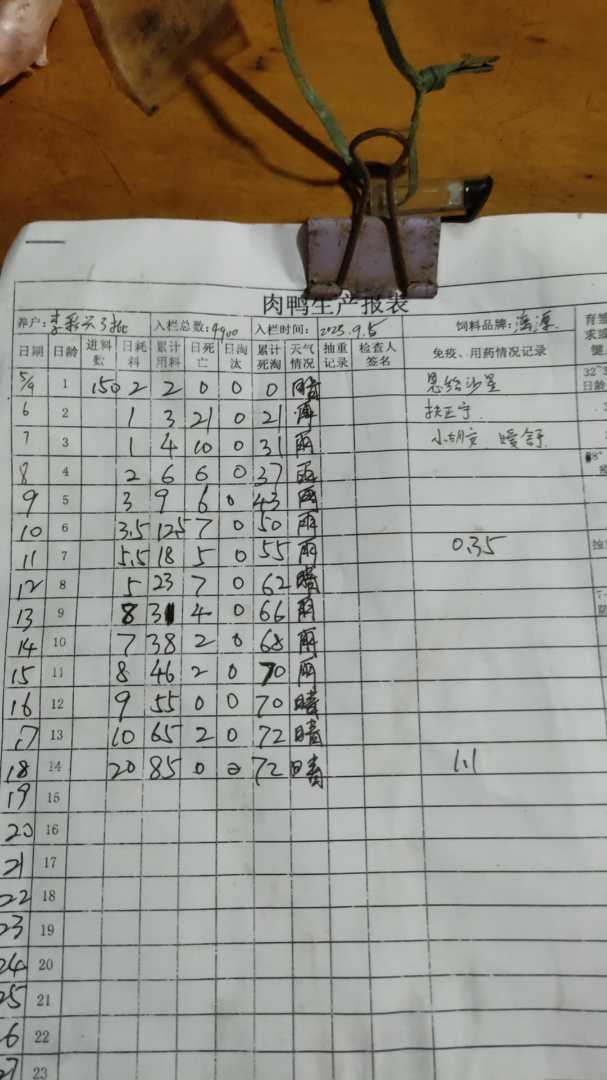 肉鸭生产报表
养户: 入栏总数: 入栏时间: 2025.9.5 饲料品牌:
日期 日龄 进料数 日耗料 累计用料 日死亡 日淘汰 累计死淘 天气情况 抽重记录 检查人签名 免疫、用药情况记录
5/9 1 150 2 2 0 0 0 晴 恩给沙星
6 2 1 3 21 0 21 扶正宁
7 3 1 4 10 0 31 雨
8 4 2 6 6 0 37 雨
9 5 3 9 6 0 43 雨
10 6 3.5 12.5 7 0 50 雨
11 7 5.5 18 5 0 55 雨 0.35
12 8 5 23 7 0 62 晴
13 9 8 31 4 0 66 雨
14 10 7 38 2 0 68 雨
15 11 8 46 2 0 70 雨
16 12 9 55 0 0 70 晴
17 13 10 65 2 0 72 晴
18 14 20 85 0 0 72 晴 1.1
19 15
20 16
21 17
22 18
23 19
24 20
25 21
26 22
27 23